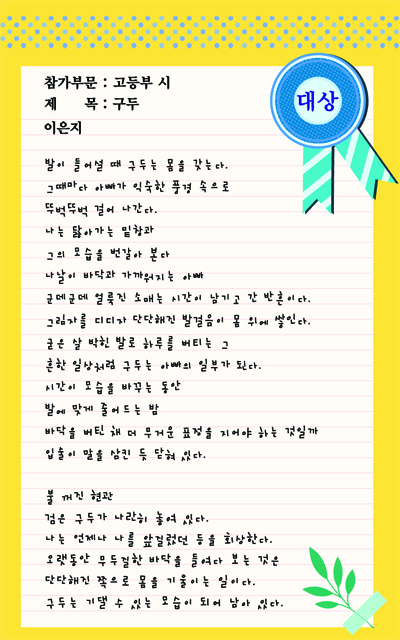 참가부문 : 고등부 시
제 목 : 구두
이은지
대상
발이 들어설 때 구두는 몸을 갖는다.
그때마다 아빠가 익숙한 풍경 속으로
뚜벅뚜벅 걸어 나간다.
나는 닳아가는 밑창과
그의 모습을 번갈아 본다
나날이 바닥과 가까워지는 아빠
군데군데 얼룩진 소매는 시간이 남기고 간 반흔이다.
그림자를 디디자 단단해진 발걸음이 몸 위에 쌓인다.
굳은 살 박힌 발로 하루를 버티는 그
흔한 일상처럼 구두는 아빠의 일부가 된다.
시간이 모습을 바꾸는 동안
발에 맞게 줄어드는 밤
바닥을 버틴 채 더 무거운 표정을 지어야 하는 것일까
입술이 말을 삼킨 듯 닫혀 있다.
불 꺼진 현관
검은 구두가 나란히 놓여 있다.
나는 언제나 나를 앞걸렀던 등을 회상한다.
오랫동안 무두질한 바닥을 들여다 보는 것은
단단해진 쪽으로 몸을 기울이는 일이다.
구두는 기댈 수 있는 모습이 되어 남아 있다.